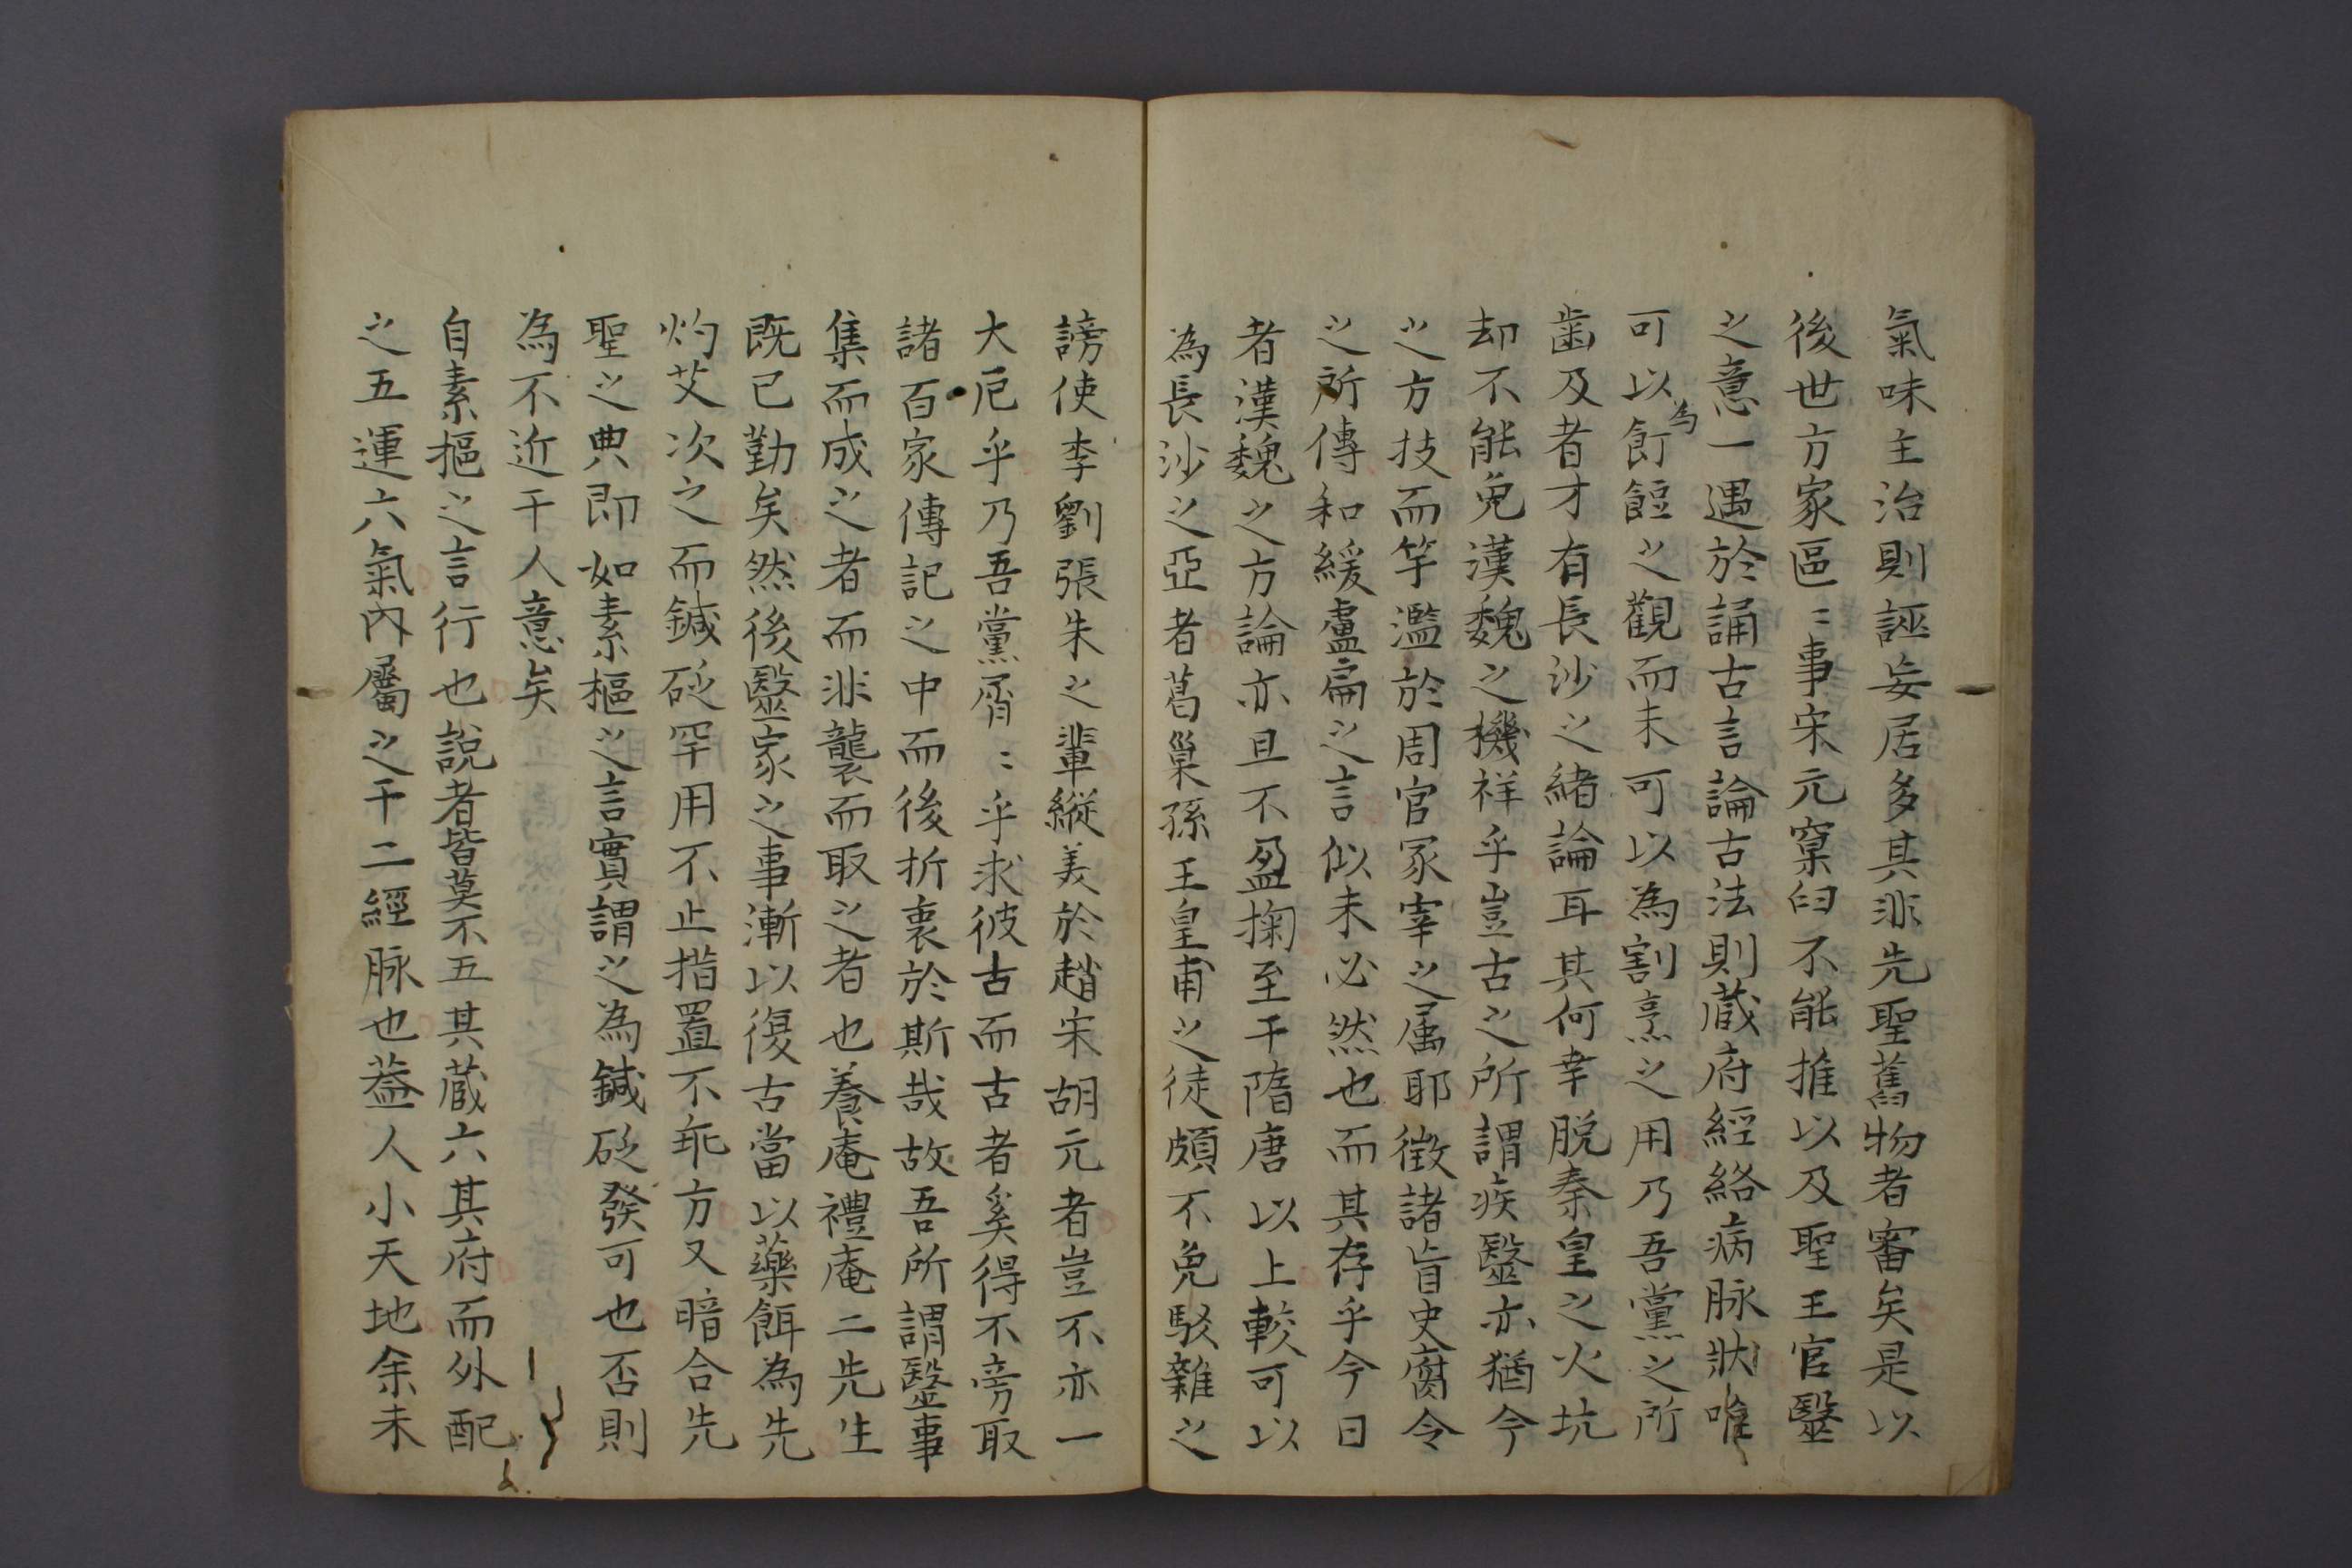 氣味主治則誣妄居多其非先聖舊物者審矣是以
後世方家區〻事宋元窠臼不能推以及聖王官醫
之意一遇於誦古言論古法則蔵府經絡病脉狀唯
可以為飣餖之觀而未可以為割烹之用乃吾黨之所
齒及者才有長沙之緒論耳其何幸脱秦皇之火坑
却不能免漢魏之機祥乎豈古之所謂疾醫亦猶今
之方技而竽濫於周官冢宰之属耶徴諸盲史腐令
之所傳和緩盧扁之言似未必然也而其存乎今日
者漢魏之方論亦且不盈掬至于隋唐以上較可以
為長沙之亞者葛巢孫王皇甫之徒頗不免駁雜之
謗使李劉張朱之輩縦美於趙宋胡元者豈不亦一
大厄乎乃吾黨屑〻乎求彼古而古者奚得不旁取
諸百家傳記之中而後折衷於斯哉故吾所謂醫事
集而成之者而非襲而取之者也養庵禮庵二先生
既已勤矣然後醫家之事漸以復古當以藥餌為先
灼艾次之而鍼砭罕用不止措置不乖方又暗合先
聖之典即如素樞之言實謂之為鍼砭發可也否則
為不近于人意矣
自素樞之言行也説者皆莫不五其蔵六其府而外配
之五運六氣内屬之十二經脉也葢人小天地余未